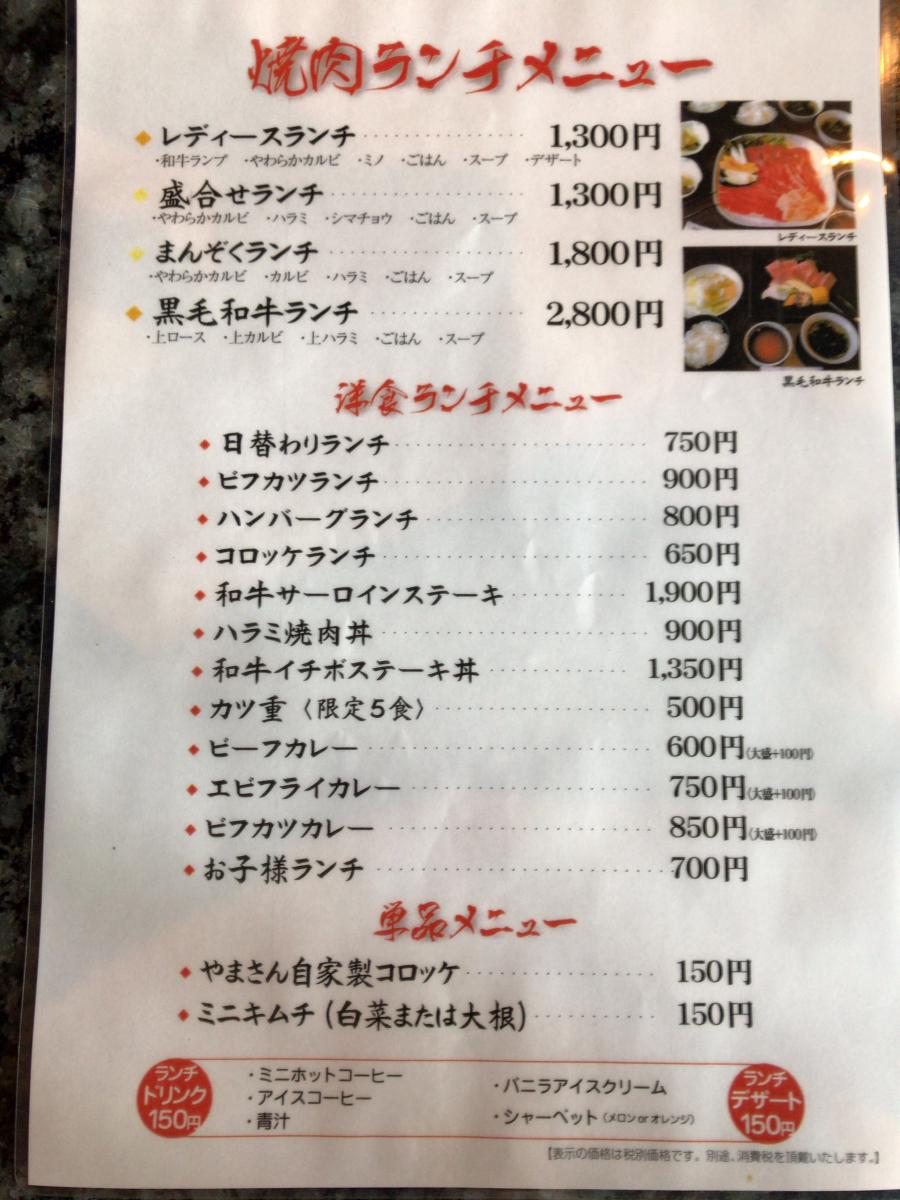 焼肉ランチメニュー
◆レディースランチ 1,300円
・和牛ランプ ・やわらかカルビ ・ミノ ・ごはん ・スープ ・デザート
◆盛合せランチ 1,300円
・やわらかカルビ ・ハラミ ・シマチョウ ・ごはん ・スープ
◆まんぞくランチ 1,800円
・やわらかカルビ ・カルビ ・ハラミ ・ごはん ・スープ
◆黒毛和牛ランチ 2,800円
・上ロース ・上カルビ ・上ハラミ ・ごはん ・スープ
レディースランチ
黒毛和牛ランチ
洋食ランチメニュー
◆日替わりランチ 750円
◆ビフカツランチ 900円
◆ハンバーグランチ 800円
◆コロッケランチ 650円
◆和牛サーロインステーキ 1,900円
◆ハラミ焼肉丼 900円
◆和牛イチボステーキ丼 1,350円
◆カツ重〈限定5食〉 500円
◆ビーフカレー 600円(大盛+100円)
◆エビフライカレー 750円(大盛+100円)
◆ビフカツカレー 850円(大盛+100円)
◆お子様ランチ 700円
単品メニュー
◆やまさん自家製コロッケ 150円
◆ミニキムチ(白菜または大根) 150円
ランチ
ドリンク
150円
・ミニホットコーヒー
・アイスコーヒー
・青汁
・バニラアイスクリーム
・シャーベット(メロンorオレンジ)
ランチ
デザート
150円
【表示の価格は税別価格です。別途、消費税を頂戴いたします。】